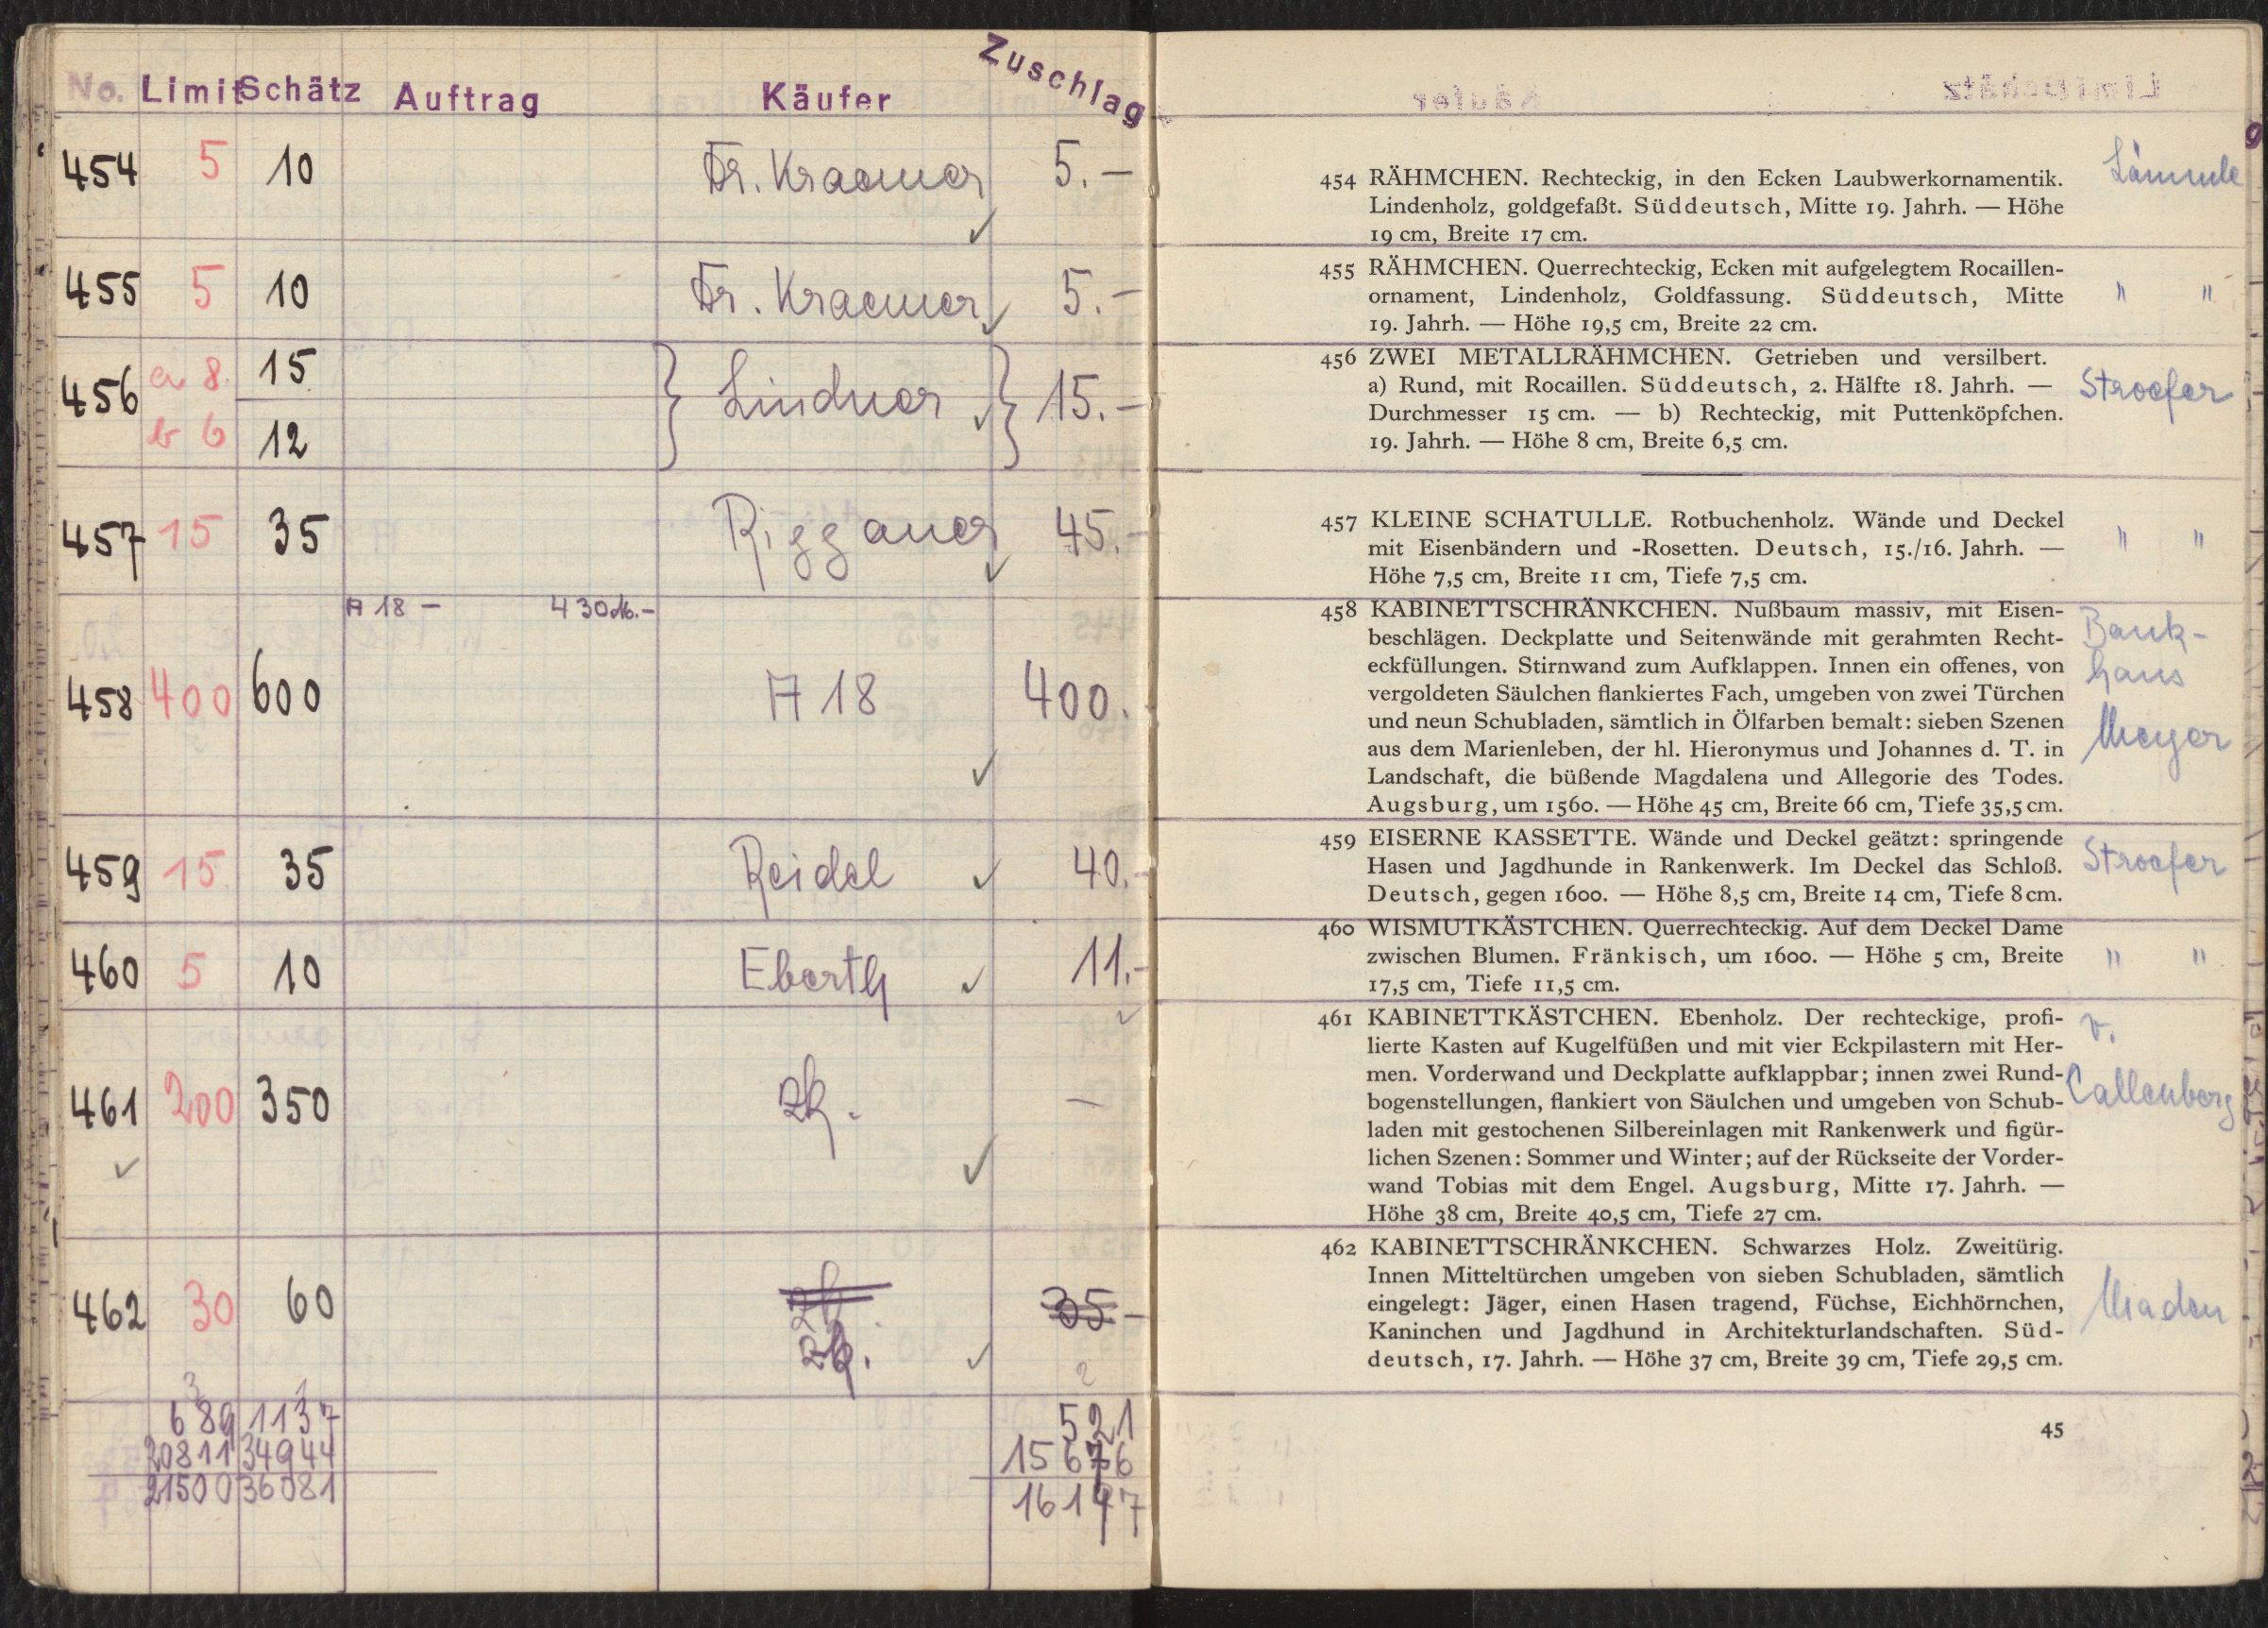 No. Limit Schätz Auftrag Käufer Zuschlag
454 5 10 Dr. Kraemer 5.—
455 5 10 Dr. Kraemer 5.—
456 a 8. 15 Lindner 15.—
b 6 12
457 15 35 Riggauer 45.—
A 18 — 430 M.—
458 400 600 A 18 400.
459 15. 35 Reidel 40.—
460 5 10 Eberth 11.—
461 200 350 zk. —
462 30 60 zk 35 —
zk.
3 1 2
689 1137 521
20811 34944 15676
21500 36081 16197
454 RÄHMCHEN. Rechteckig, in den Ecken Laubwerkornamentik.
Lindenholz, goldgefaßt. Süddeutsch, Mitte 19. Jahrh. — Höhe
19 cm, Breite 17 cm.
Lämmle
455 RÄHMCHEN. Querrechteckig, Ecken mit aufgelegtem Rocaillen-
ornament, Lindenholz, Goldfassung. Süddeutsch, Mitte
19. Jahrh. — Höhe 19,5 cm, Breite 22 cm.
" "
456 ZWEI METALLRÄHMCHEN. Getrieben und versilbert.
a) Rund, mit Rocaillen. Süddeutsch, 2. Hälfte 18. Jahrh. —
Durchmesser 15 cm. — b) Rechteckig, mit Puttenköpfchen.
19. Jahrh. — Höhe 8 cm, Breite 6,5 cm.
Stroefer
457 KLEINE SCHATULLE. Rotbuchenholz. Wände und Deckel
mit Eisenbändern und -Rosetten. Deutsch, 15./16. Jahrh. —
Höhe 7,5 cm, Breite 11 cm, Tiefe 7,5 cm.
" "
458 KABINETTSCHRÄNKCHEN. Nußbaum massiv, mit Eisen-
beschlägen. Deckplatte und Seitenwände mit gerahmten Recht-
eckfüllungen. Stirnwand zum Aufklappen. Innen ein offenes, von
vergoldeten Säulchen flankiertes Fach, umgeben von zwei Türchen
und neun Schubladen, sämtlich in Ölfarben bemalt: sieben Szenen
aus dem Marienleben, der hl. Hieronymus und Johannes d. T. in
Landschaft, die büßende Magdalena und Allegorie des Todes.
Augsburg, um 1560. — Höhe 45 cm, Breite 66 cm, Tiefe 35,5 cm.
Bank-
haus
Meyer
459 EISERNE KASSETTE. Wände und Deckel geätzt: springende
Hasen und Jagdhunde in Rankenwerk. Im Deckel das Schloß.
Deutsch, gegen 1600. — Höhe 8,5 cm, Breite 14 cm, Tiefe 8 cm.
Stroefer
460 WISMUTKÄSTCHEN. Querrechteckig. Auf dem Deckel Dame
zwischen Blumen. Fränkisch, um 1600. — Höhe 5 cm, Breite
17,5 cm, Tiefe 11,5 cm.
" "
461 KABINETTKÄSTCHEN. Ebenholz. Der rechteckige, profi-
lierte Kasten auf Kugelfüßen und mit vier Eckpilastern mit Her-
men. Vorderwand und Deckplatte aufklappbar; innen zwei Rund-
bogenstellungen, flankiert von Säulchen und umgeben von Schub-
laden mit gestochenen Silbereinlagen mit Rankenwerk und figür-
lichen Szenen: Sommer und Winter; auf der Rückseite der Vorder-
wand Tobias mit dem Engel. Augsburg, Mitte 17. Jahrh. —
Höhe 38 cm, Breite 40,5 cm, Tiefe 27 cm.
v.
Callenberg
462 KABINETTSCHRÄNKCHEN. Schwarzes Holz. Zweitürig.
Innen Mitteltürchen umgeben von sieben Schubladen, sämtlich
eingelegt: Jäger, einen Hasen tragend, Füchse, Eichhörnchen,
Kaninchen und Jagdhund in Architekturlandschaften. Süd-
deutsch, 17. Jahrh. — Höhe 37 cm, Breite 39 cm, Tiefe 29,5 cm.
Maden
45